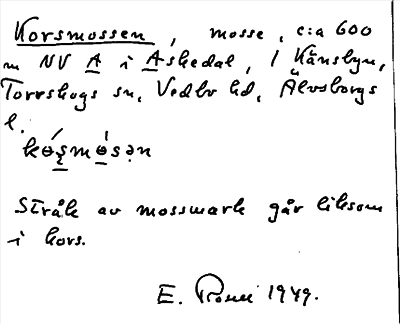 Korsmossen, mosse, c:a 600
m NV A i Askedal, 1 Känsbyn,
Torrskogs sn, Vedbo hd, Älvsborgs
l.
Stråk av mossmark går liksom
i kors.
E. 1949.